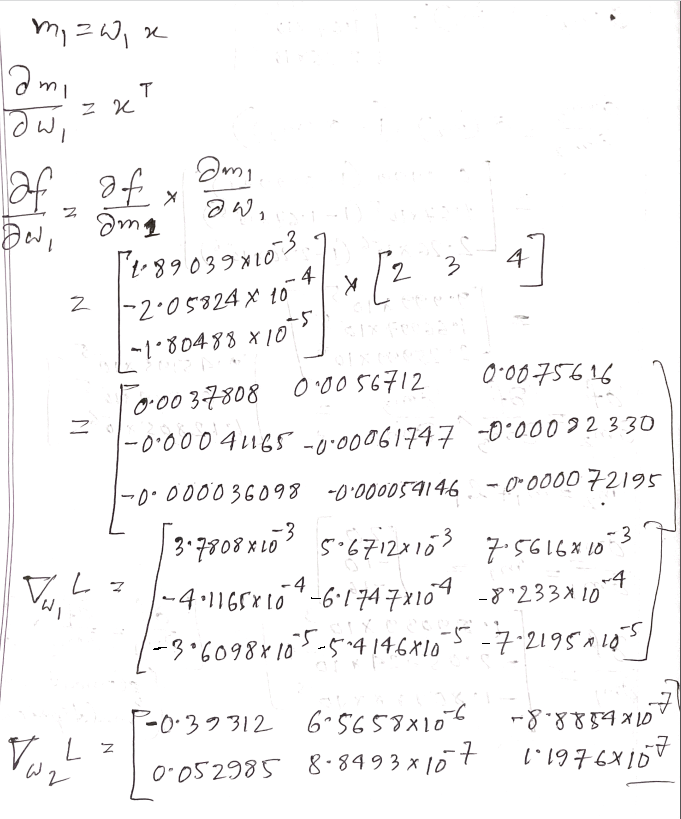 m₁ = ω₁ x
∂m₁/∂ω₁ = x^T
∂f/∂ω₁ = ∂f/∂m₁ × ∂m₁/∂ω₁
= [1.89039×10^-3; -2.05824×10^-4; -1.80488×10^-5] × [2 3 4]
= [0.0037808 0.0056712 0.0075616
-0.00041165 -0.00061747 -0.00082330
-0.000036098 -0.000054146 -0.000072195]
∇ω₁ L = [3.7808×10^-3 5.6712×10^-3 7.5616×10^-3
-4.1165×10^-4 -6.1747×10^-4 -8.233×10^-4
-3.6098×10^-5 -5.4146×10^-5 -7.2195×10^-5]
∇ω₂ L = [-0.39312 6.5658×10^-6 -8.8854×10^-7
0.052985 8.8493×10^-7 1.1976×10^-7]